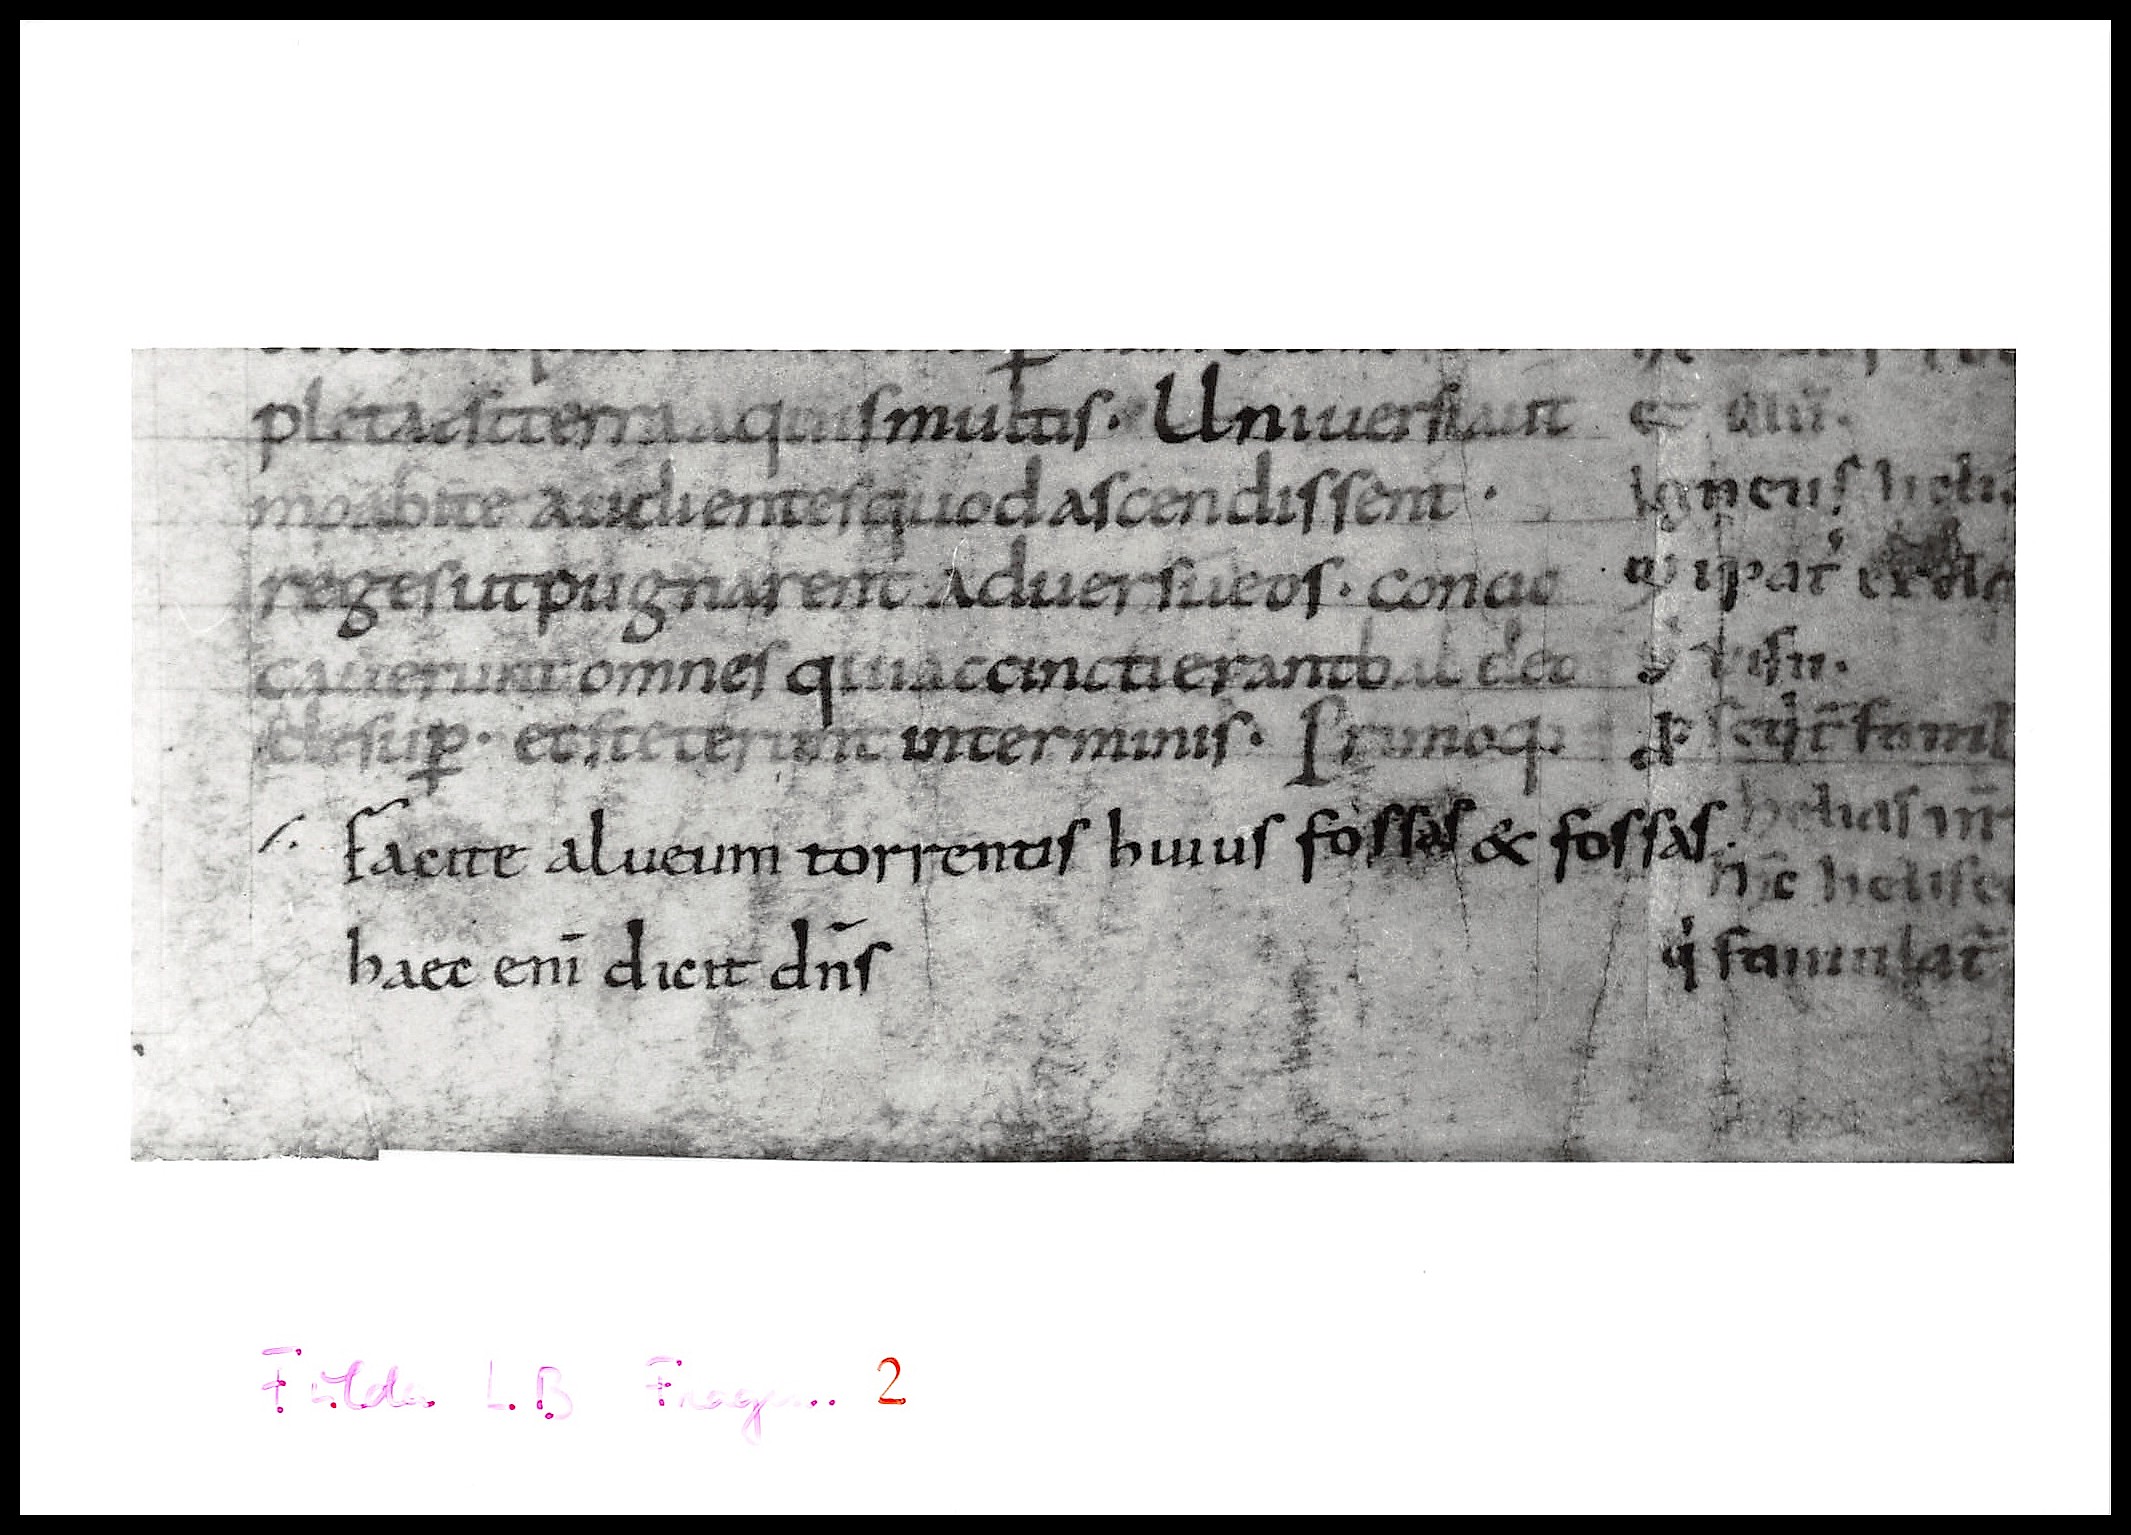 pleta est terra aquis multis. Universi aut
moabite audientes quod ascendissent.
reges ut pugnarent adversū eos. convo
caverunt omnes qui accincti erant bal teo
desuꝑ. et steterunt in terminis. Primoq;
facite alveum torrentis huius fossas & fossas.
haec enī dicit dn̄s
igneus heli
helias in
hē helise
famulat
Fulda L.B Fragm. 2